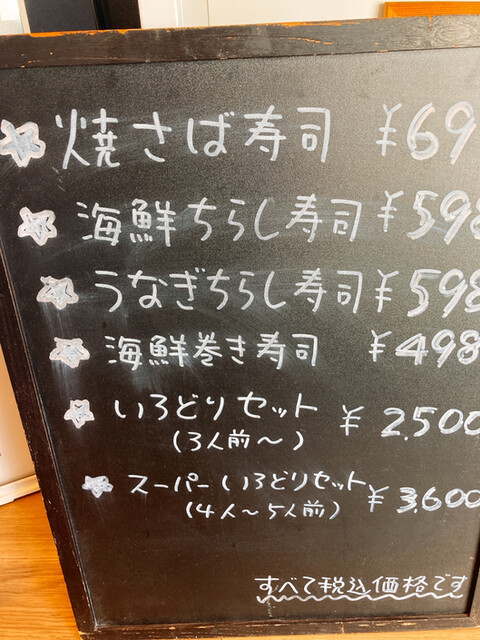 焼さば寿司 ¥69
海鮮ちらし寿司 ¥598
うなぎちらし寿司 ¥598
海鮮巻き寿司 ¥498
いろどりセット ¥2.500
(3人前〜)
スーパーいろどりセット ¥3.600
(4人〜5人前)
すべて税込価格です